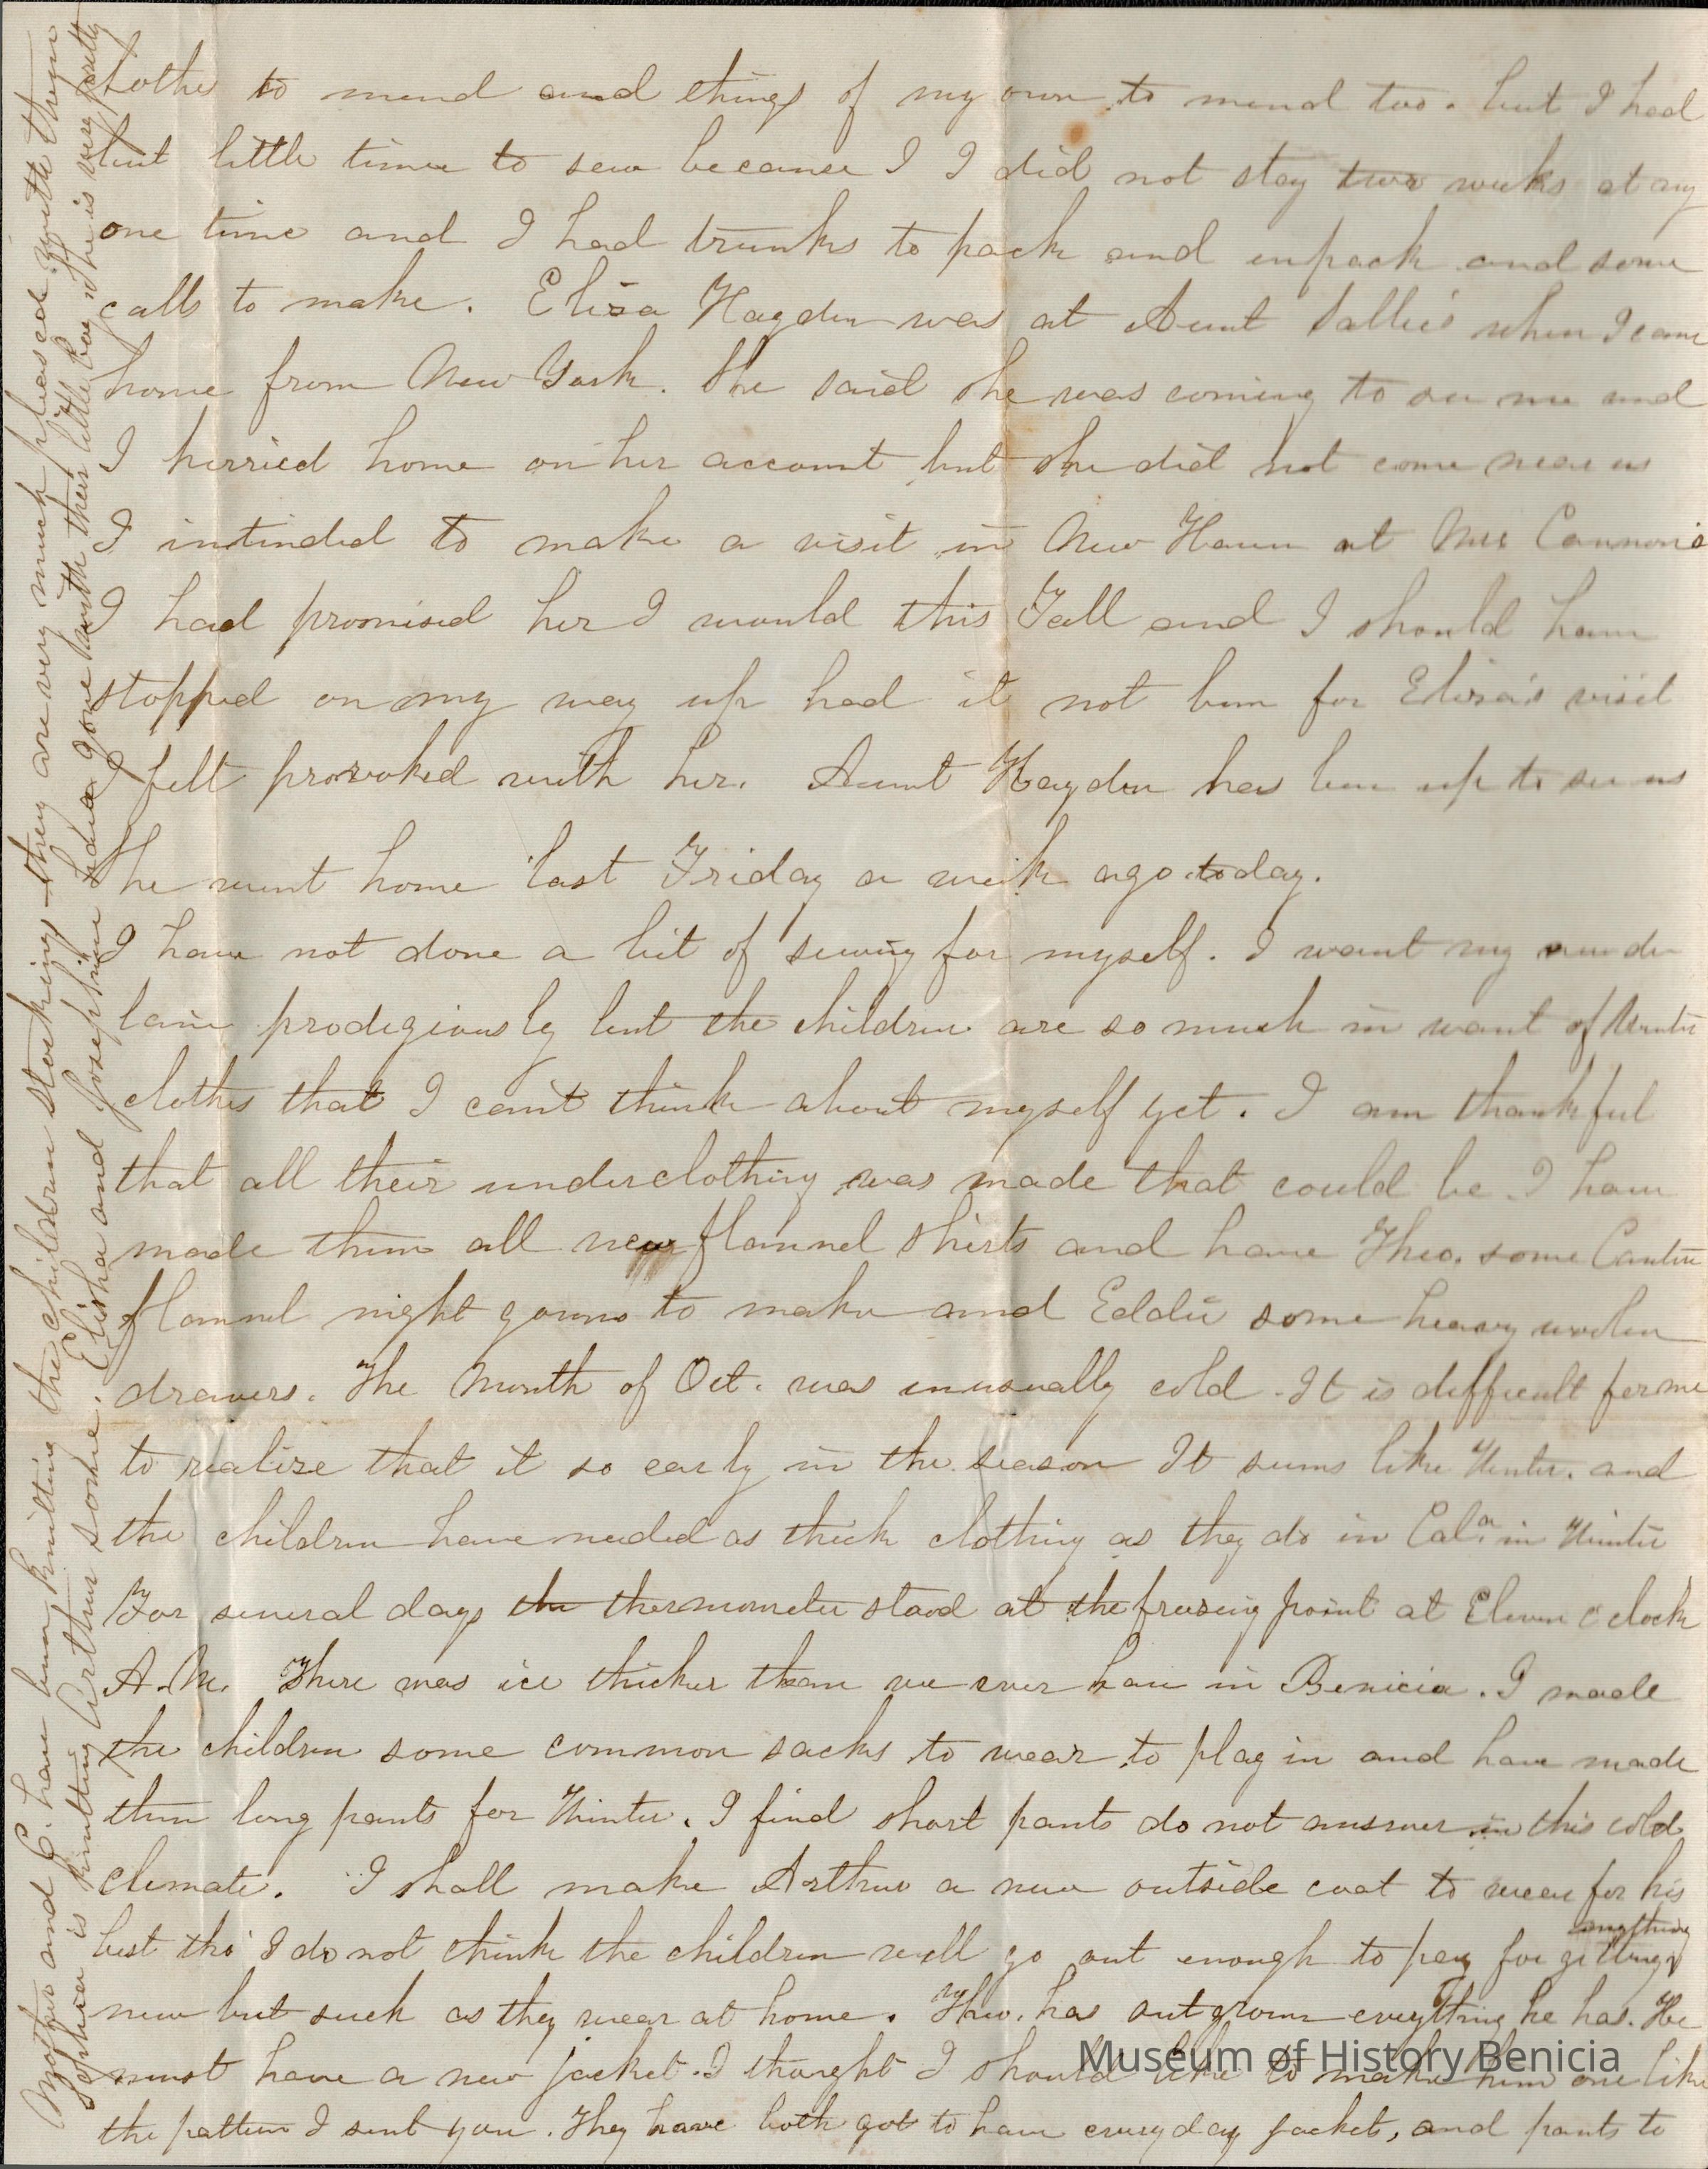 clothes to mend and things of my own to mend too. but I had
but little time to sew because I I did not stay two weeks at any
one time and I had trunks to pack and unpack and some
calls to make. Eliza Hayden was at Aunt Sallie's when I came
home from New York. She said she was coming to see me and
I hurried home on her account but she did not come near us
I intended to make a visit in New Haven at Mrs Cannon's
I had promised her I would this Fall and I should have
stopped on my way up had it not been for Eliza's visit
I felt provoked with her. Aunt Hayden has been up to see us
She went home last Friday a week ago today.
I have not done a bit of sewing for myself. I want my
prodigiously but the children are so much in want of Winter
clothes that I can't think about myself yet. I am thankful
that all their underclothing was made that could be I have
made them all new flannel shirts and have Theo. some Canton
flannel night gowns to make and Eddie some heavy woolen
drawers. The Month of Oct. was unusually cold. It is difficult for me
to realize that it so early in the season It seems like Winter. and
the children have needed as thick clothing as they do in Cala. in Winter
For several days the thermometer stood at the freezing point at Eleven o'clock
A.M. There was ice thicker than we ever have in Benicia. I made
the children some common sacks to wear to play in and have made
them long pants for Winter. I find short pants do not answer in this cold
climate. I shall make Arthur a new outside coat to wear for his
best tho' I do not think the children will go out enough to pay for getting anything
new but such as they wear at home. Theo. has outgrown everything he has. He
must have a new jacket. I thought I should like to make him one like
the pattern I sent you. They have both got to have every day jackets, and pants to
Mother and E. have been knitting the children stockings they are very much pleased with them
Sophia is knitting Arthur some. Elisha and Josephine have gone with their little boy. She is very pretty
Museum of History Benicia